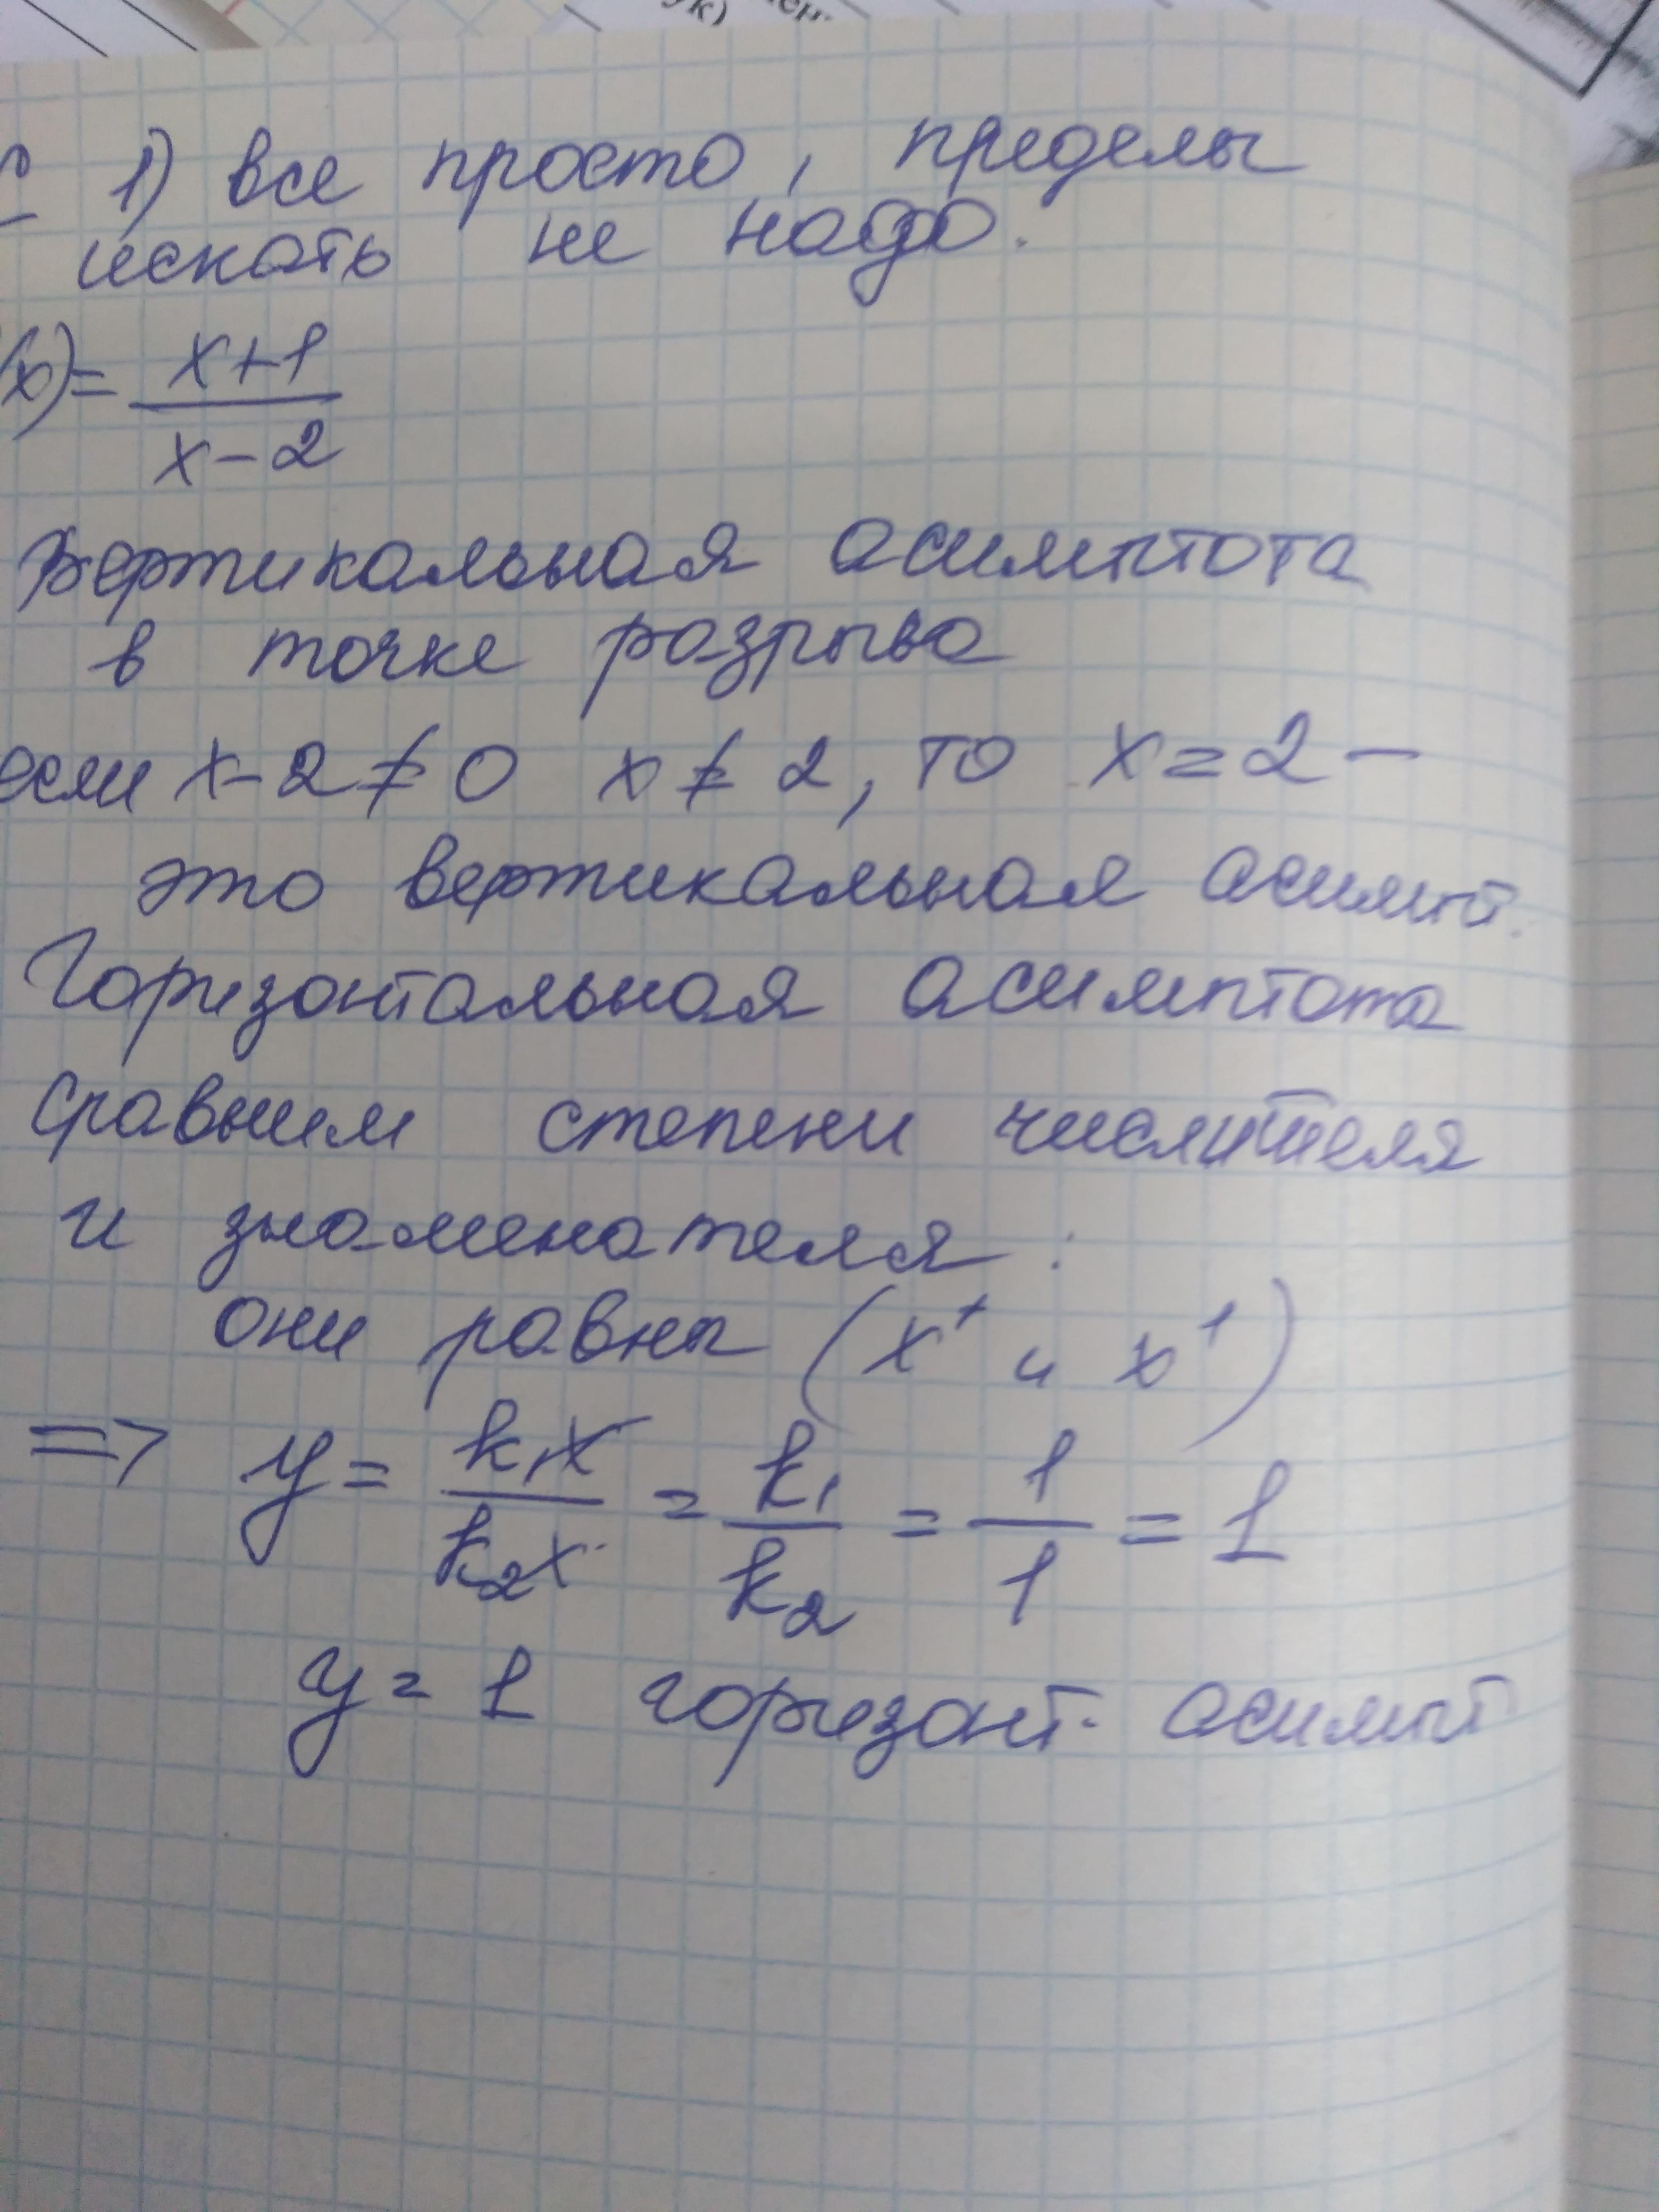 ук)
1) все просто, пределы
искать не надо.
(x) = x+1 / x-2
Вертикальная асимптота
в точке разрыва
если x-2≠0 x≠2, то x=2 –
это вертикальная асимпт.
Горизонтальная асимптота
Сравним степени числителя
и знаменателя:
они равны (x¹ и x¹)
=> y = k₁x / k₂x = k₁ / k₂ = 1 / 1 = 1
y = 1 горизонт. асимпт